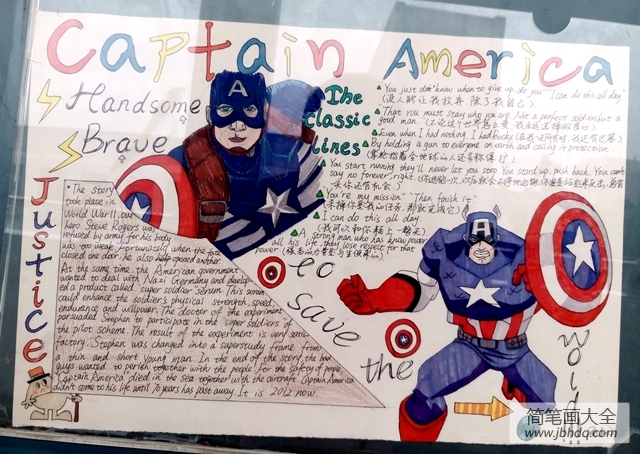 Captain America
Handsome
Brave
Justice
The
Classic
lines
You just don't know when to give up, do you "I can do this all day."
(没人能让我放弃 除了我自己)
That you must stay who you are. Not a perfect soldier but a
good man.
Even when I had nothing, I had Bucky
By holding a gun to everyone on earth and calling it protection.
You start running they'll never let you stop. You stand up, push back. You can't
say no forever, right
You're my mission" "Then finish it"
I can do this all day
A strong man who has know power
all his life, they lose respect for that
power
The story
took place in
World War II, our
hero Steve Rogers was
refused by army for his body
was too weak. Fortunately, when the fate
closed one door, he also help opened another.
At the same time, the American government
wanted to deal with Nazi Germany and develop-
ed a product called super soldier serum. This serum
could enhance the soldier's physical strength, speed,
endurance and willpower. The doctor of the experiment
persuaded Stephen to participate in the super soldiers of
the pilot scheme. The result of the experiment is very satis-
factory. Stephen was changed into a superstudy frame from
a thin and short young man. In the end of the story, the bad
guys wanted to perish together with the people for the safety of people,
Captain America died in the sea together with the aircraft. Captain America
didn't come to his life until 70 years has past away. It is 2012 now.
to
save
the
World
简笔画大全
www.jbhdq.com